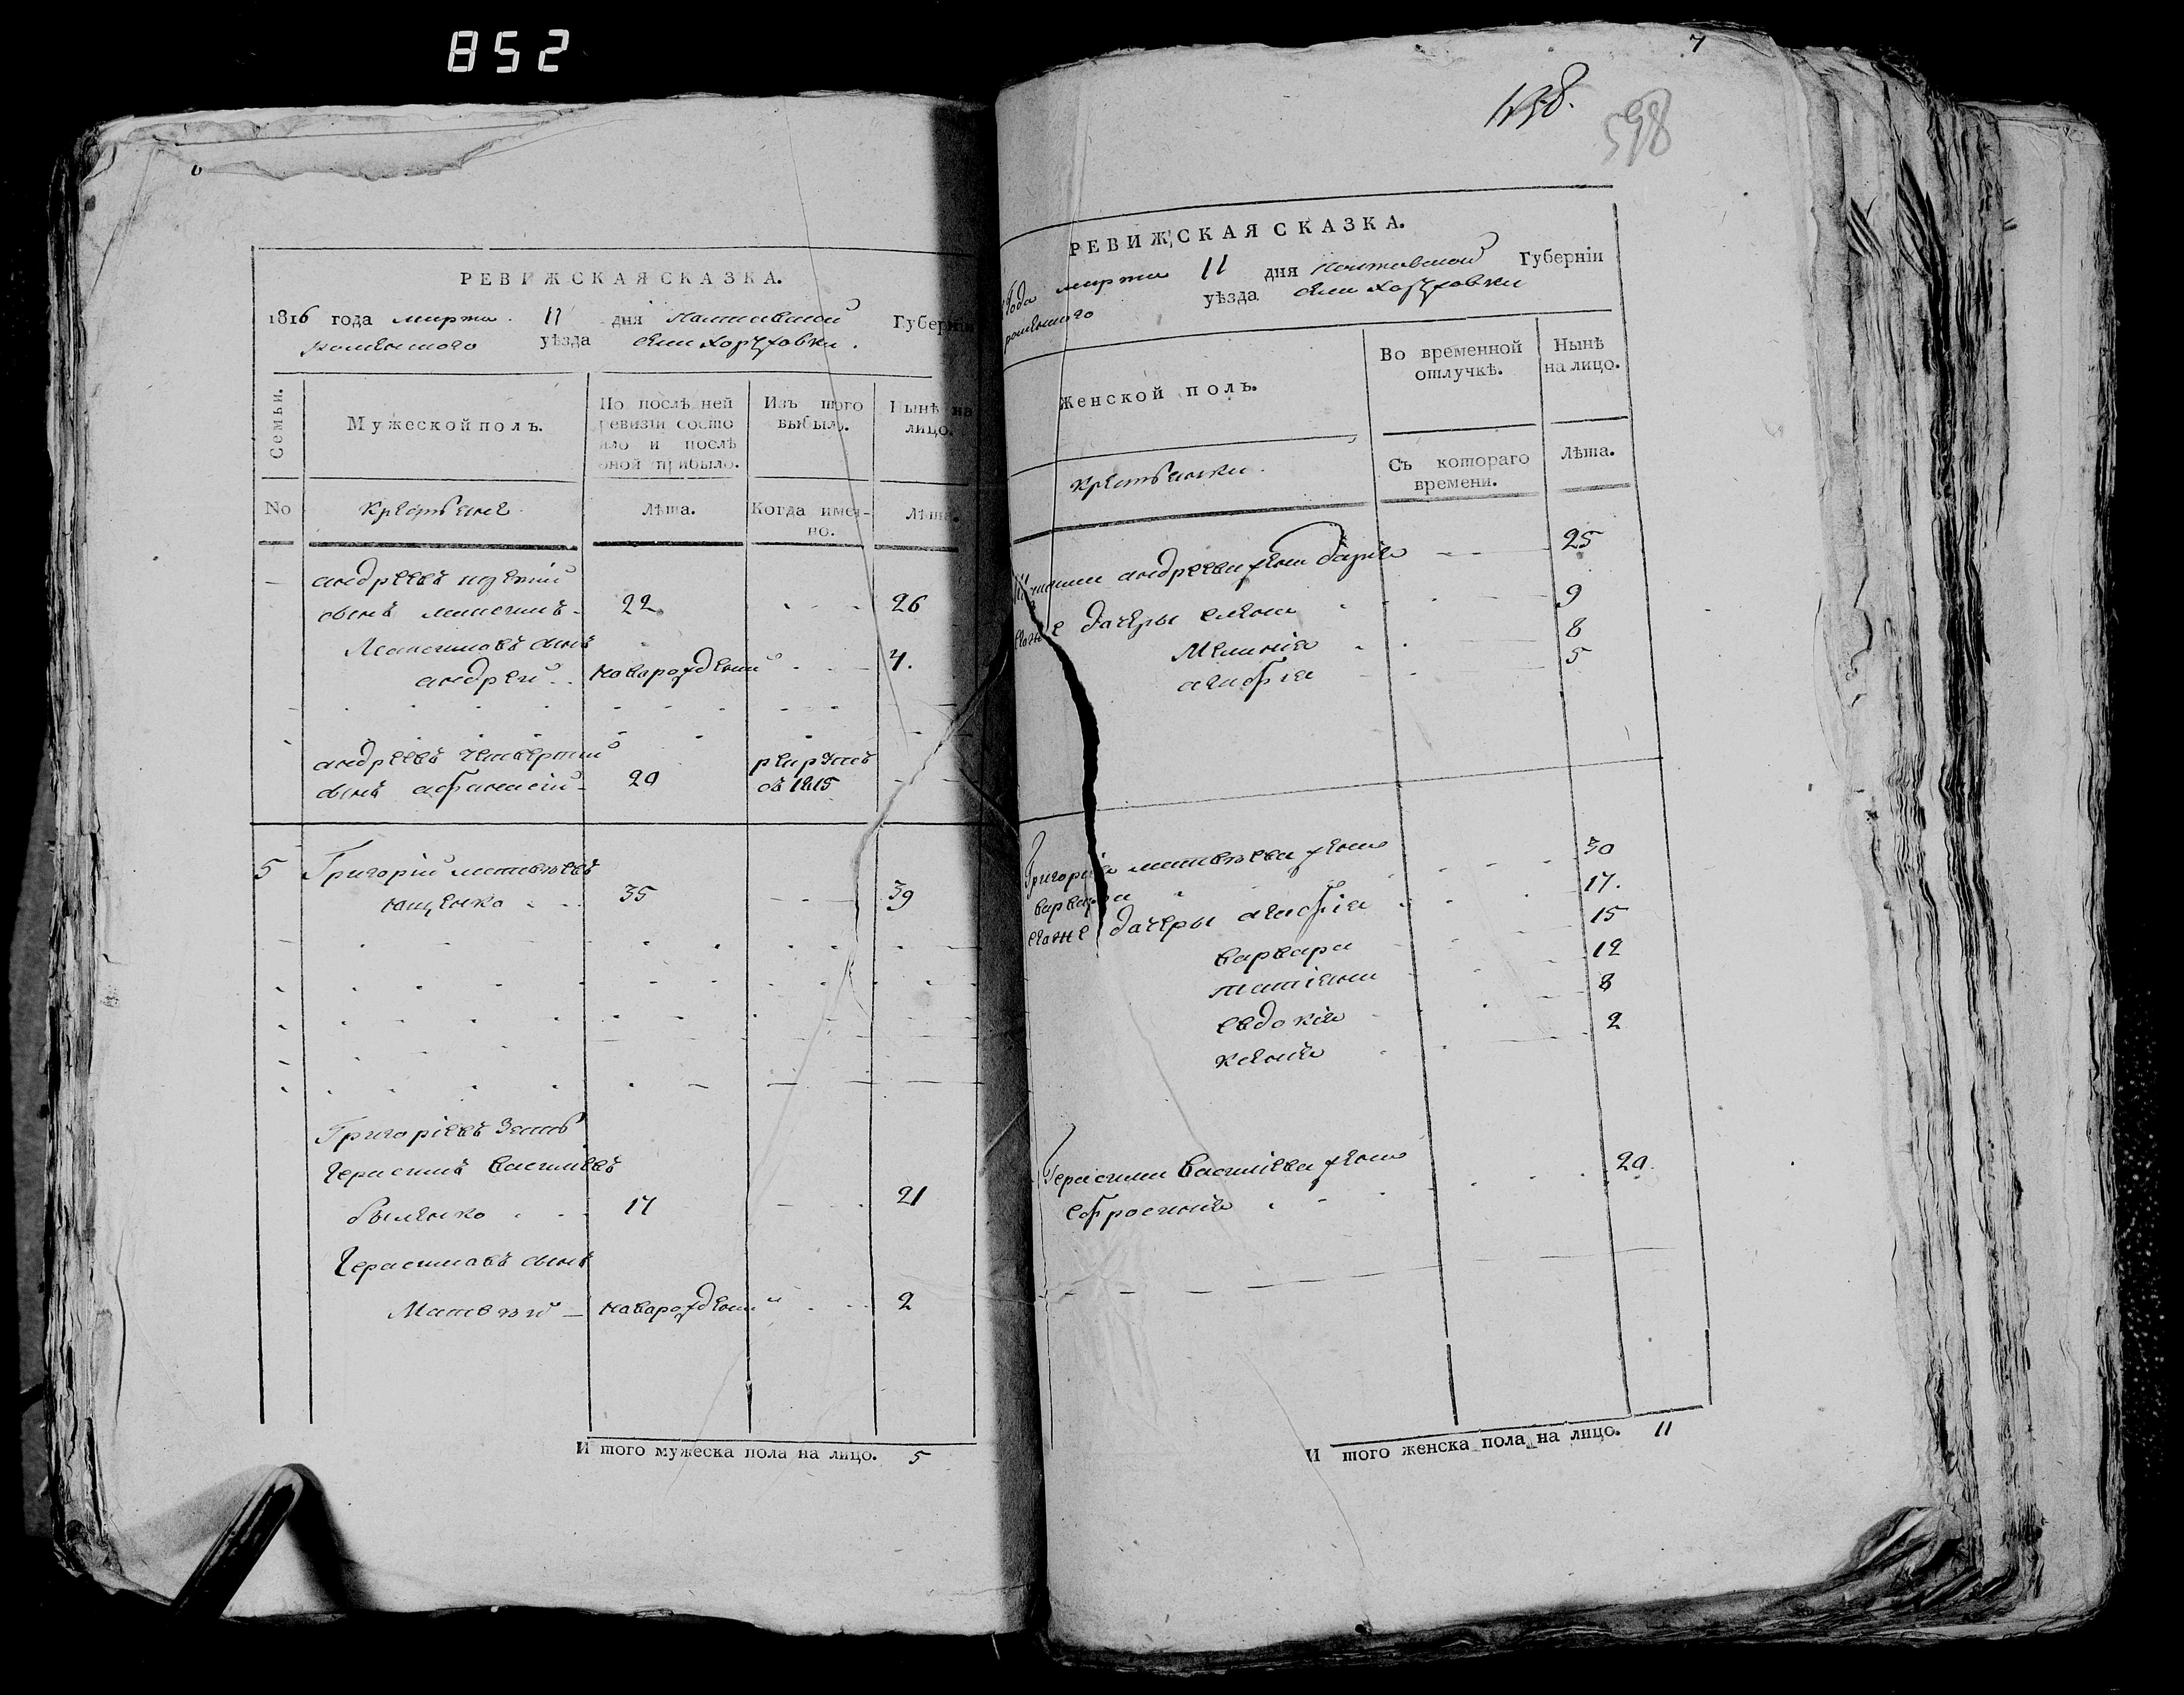 852
6
РЕВИЖСКАЯ СКАЗКА.
1816 года марта 11 дня Полтавской Губерніи
роменского уѣзда села Хоружовки.
Семьи.
Мужеской полъ.
По послѣдней ревизіи состояло и послѣ оной прибыло.
Изъ того выбыло.
Нынѣ на лицо.
No
Крестьяне
Лѣта.
Когда именно.
Лѣта.
андреевъ
сынъ 22 26
сынъ
андрей новорожденный 4.
андреевъ четвертий рекрутъ
сынъ афанасий 20 въ 1815
5 Григорій матвѣевъ
ющенко 35 39
Григоріевъ зять
Герасимъ василіевъ
17 21
Герасимовъ сынъ
Матвѣй новорожденний 2
И того мужеска пола на лицо. 5
7
598
РЕВИЖСКАЯ СКАЗКА.
года марта 11 дня Полтавской Губерніи
роменского уѣзда села Хоружовки
Женской полъ.
Во временной отлучкѣ.
Нынѣ на лицо.
Крестьянки.
Съ котораго времени.
Лѣта.
андреева жена дарія 25
дачеры елена 9
Меланія 8
агафія 5
Григорія матвѣева жена
варвара 30
дачеры агафія 17.
варвара 15
татіана 12
евдокія 8
ксенія 2
Герасима василіева жена
ефросинія 20.
И того женска пола на лицо. 11